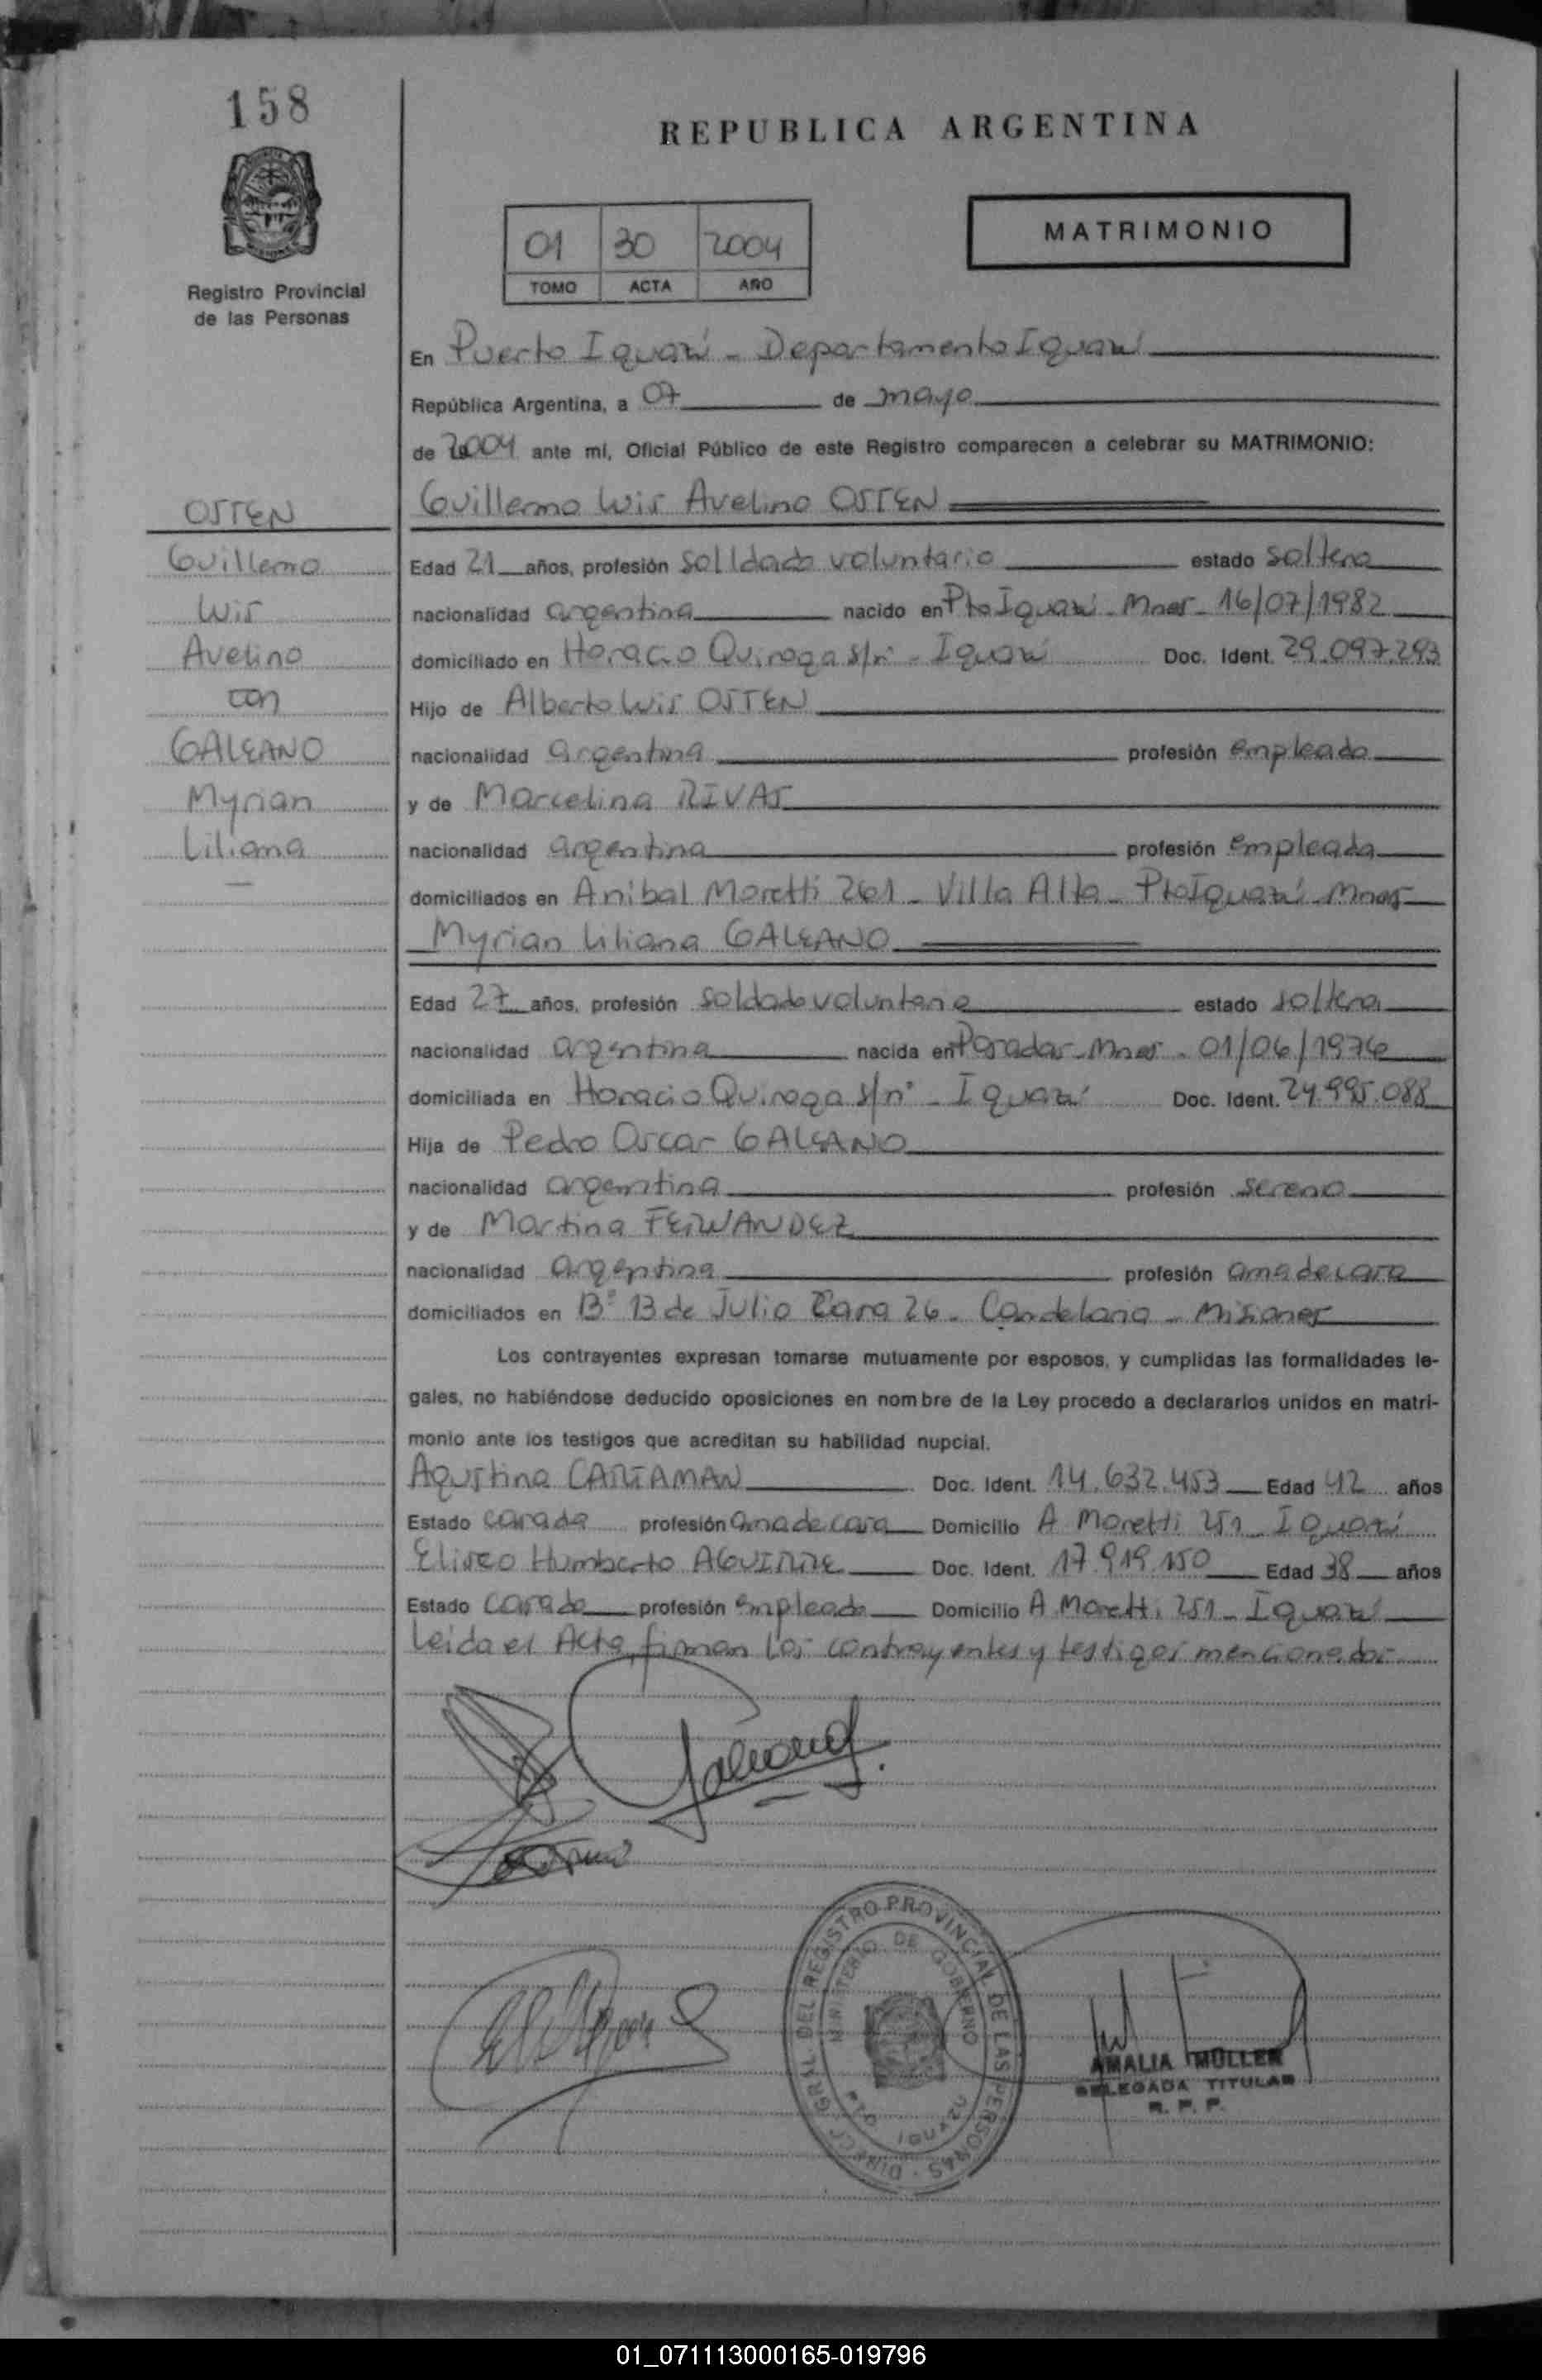 158
REPUBLICA ARGENTINA
01 30 2004
TOMO ACTA AÑO
MATRIMONIO
Registro Provincial
de las Personas
En Puerto Iguazú - Departamento Iguazú
República Argentina, a 07 de mayo
de 2004 ante mi, Oficial Público de este Registro comparecen a celebrar su MATRIMONIO:
OSTEN
Guillermo
Luis
Avelino
con
GALEANO
Myrian
Liliana
Guillermo Luis Avelino OSTEN
Edad 21 años, profesión solldado voluntario estado soltero
nacionalidad argentina nacido en Pto Iguazú - Mnes - 16/07/1982
domiciliado en Horacio Quiroga s/n° - Iguazú Doc. Ident. 29.097.293
Hijo de Alberto Luis OSTEN
nacionalidad argentina profesión empleado
y de Marcelina RIVAS
nacionalidad argentina profesión empleada
domiciliados en Anibal Moretti 261 - Villa Alta - Pto Iguazú - Mnes
Myrian Liliana GALEANO
Edad 27 años, profesión soldado voluntario estado soltera
nacionalidad argentina nacida en Posadas - Mnes - 01/06/1976
domiciliada en Horacio Quiroga s/n° - Iguazú Doc. Ident. 24.995.088
Hija de Pedro Oscar GALEANO
nacionalidad argentina profesión sereno
y de Martina FERNANDEZ
nacionalidad argentina profesión ama de casa
domiciliados en B° 13 de Julio Casa 26 - Candelaria - Misiones
Los contrayentes expresan tomarse mutuamente por esposos, y cumplidas las formalidades le-
gales, no habiéndose deducido oposiciones en nombre de la Ley procedo a declararlos unidos en matri-
monio ante los testigos que acreditan su habilidad nupcial.
Agustina Doc. Ident. 14.632.453 Edad 42 años
Estado casada profesión ama de casa Domicilio A Moretti 251 - Iguazú
Eliseo Humberto AGUIRRE Doc. Ident. 17.919.150 Edad 38 años
Estado casado profesión empleado Domicilio A. Moretti 251 - Iguazú
Leida el Acta, firman los contrayentes y testigos mencionados
DIRECC. GRAL. DEL REGISTRO PROVINCIAL DE LAS PERSONAS
MINISTERIO DE GOBIERNO
IGUAZU
AMALIA MULLER
DELEGADA TITULAR
R. P. P.
01_071113000165-019796